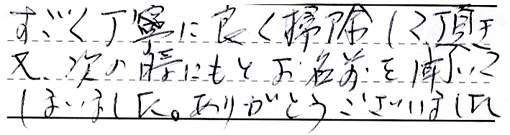 すごく丁寧に良く掃除して頂き
又、次の時にもとお名前を聞いて
しまいました。ありがとうございました